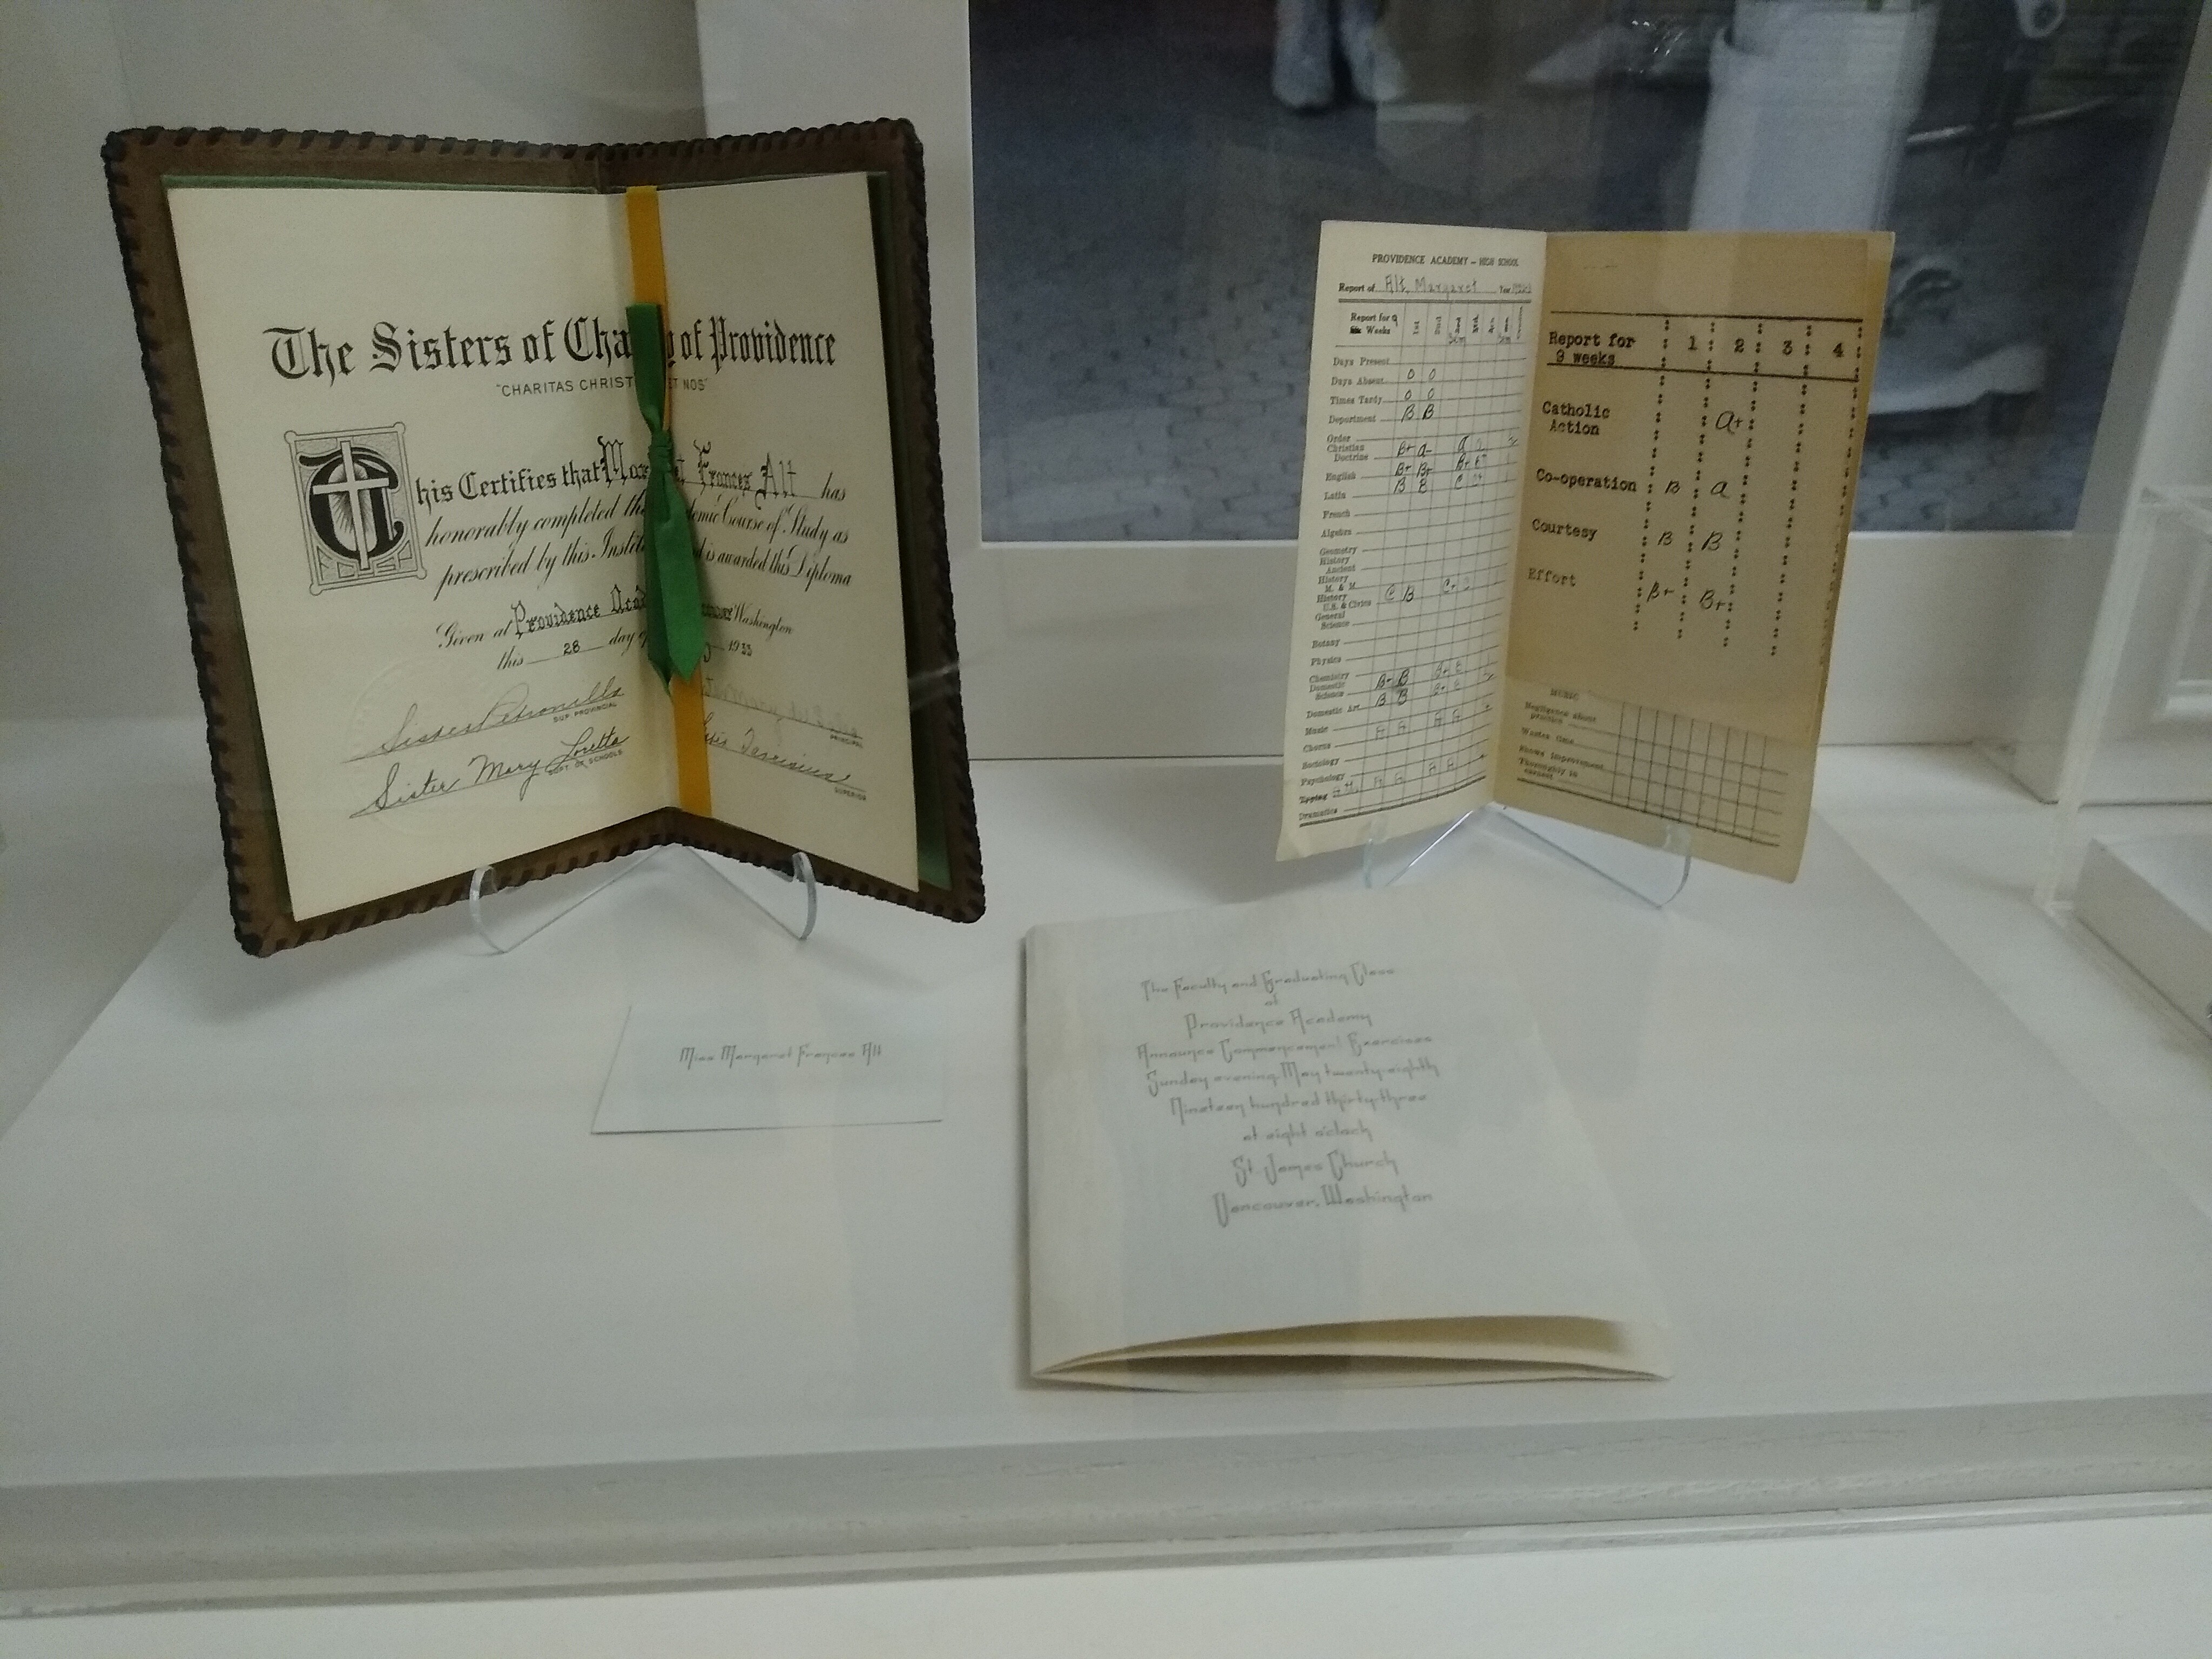 The Sisters of Cha of Providence
"CHARITAS CHRIST ET NOS"
This Certifies that Frances Alt has
honorably completed Course of Study as
prescribed by this is awarded this Diploma
Given at Providence Washington
this 28 day 1933
Sister Petronilla
SUP. PROVINCIAL
PRINCIPAL
Sister Mary Loretta
SUPT. OF SCHOOLS
SUPERIOR
PROVIDENCE ACADEMY – HIGH SCHOOL
Report of Alt, Margaret
Report for 9
Weeks
1st
Days Present
Days Absent 0 0
Times Tardy 0 0
Department B B
Order
Christian
Doctrine B+ a-
English B+ B+
Latin B B C
French
Algebra
Geometry
History
Ancient
History
M. & M.
History
U.S. & Civics C B C+
General
Science
Botany
Physics
Chemistry
Domestic
Science B- B
Domestic Art B B
Music
Chorus
Sociology
Psychology
Typing
Dramatics
Report for 1 2 3 4
9 weeks
Catholic
Action a+
Co-operation B a
Courtesy B B
Effort B+ B+
MUSIC
Negligence about
practice
Wastes time
Shows improvement
Thoroughly in
earnest
Miss Margaret Frances Alt
The Faculty and Graduating Class
at
Providence Academy
Announce Commencement Exercises
Sunday evening, May twenty-eighth
Nineteen hundred thirty-three
at eight o'clock
St. James Church
Vancouver, Washington